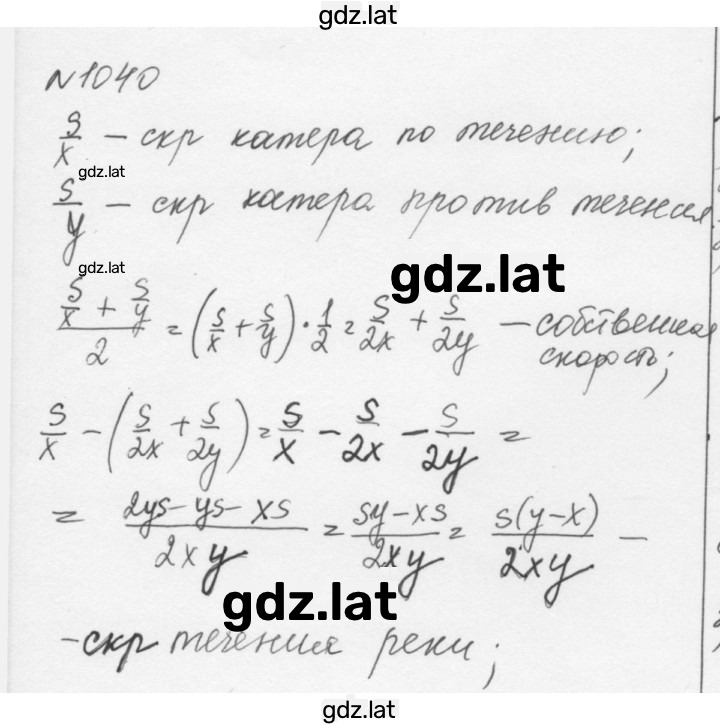 gdz.lat
№1040
S/x – скр катера по течению;
gdz.lat
S/y – скр катера против течения
gdz.lat
gdz.lat
(S/x + S/y)/2 = (S/x + S/y) · 1/2 = S/2x + S/2y – собственная
скорость;
S/x – (S/2x + S/2y) = S/x – S/2x – S/2y =
= (2ys – ys – xs)/2xy = (sy – xs)/2xy = s(y – x)/2xy –
gdz.lat
– скр течения реки;
gdz.lat